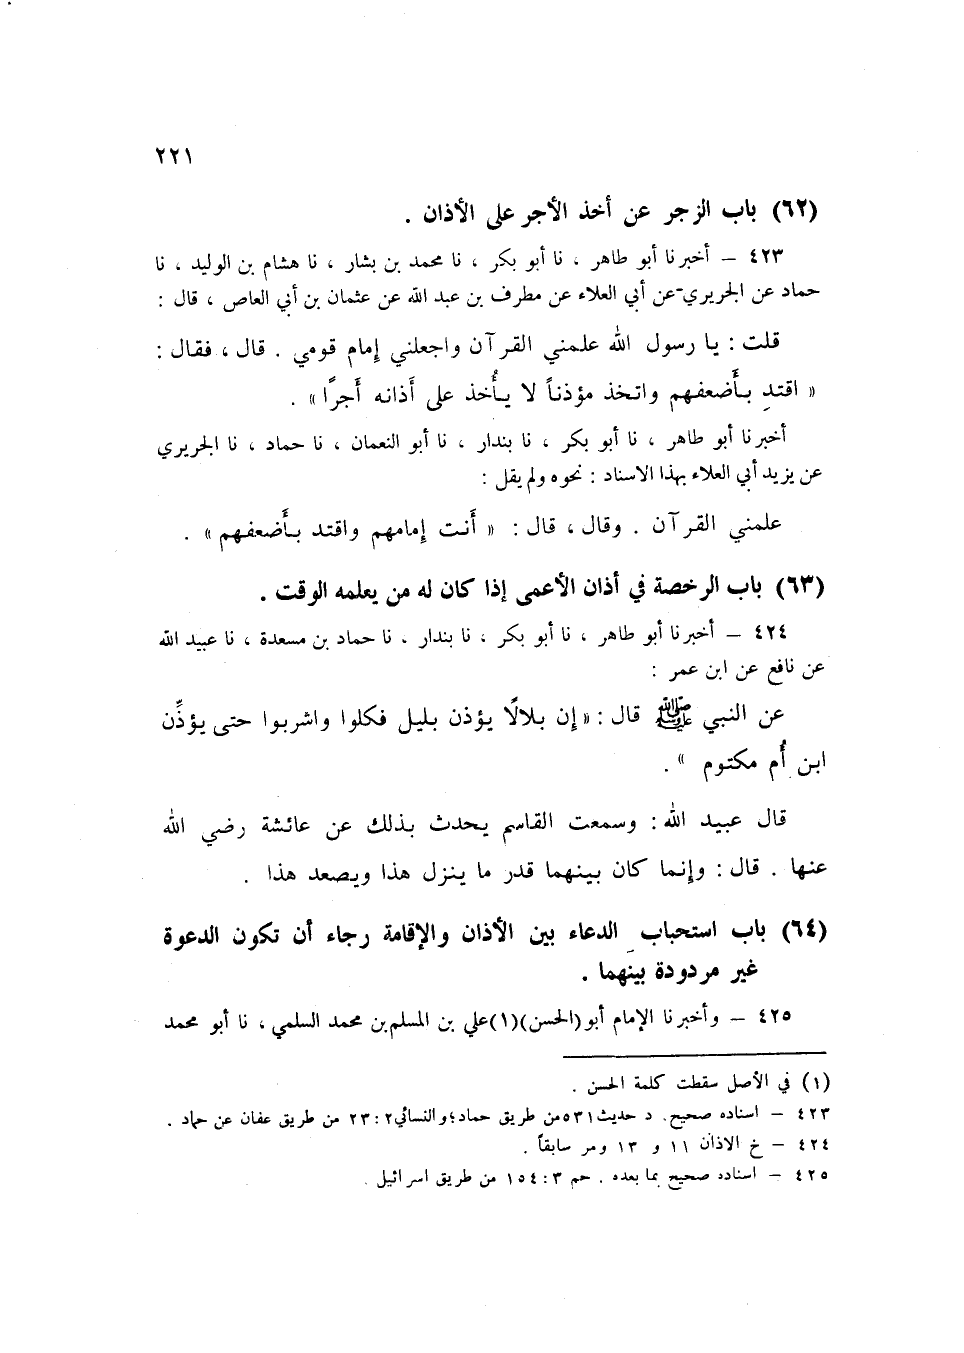 ٢٢١
(٦٢) باب الزجر عن أخذ الأجر على الأذان .
٤٢٣ – أخبرنا أبو طاهر ، نا أبو بكر ، نا محمد بن بشار ، نا هشام بن الوليد ، نا
حماد عن الجريري-عن أبي العلاء عن مطرف بن عبد الله عن عثمان بن أبي العاص ، قال :
قلت : يا رسول الله علمني القرآن واجعلني إمام قومي . قال ، فقال :
« اقتدِ بأَضعفهم واتخذ مؤذناً لا يأُخذ على أَذانه أَجرًا » .
أخبرنا أبو طاهر ، نا أبو بكر ، نا بندار ، نا أبو النعمان ، نا حماد ، نا الجريري
عن يزيد أبي العلاء بهذا الاسناد : نحوه ولم يقل :
علمني القرآن . وقال ، قال : « أَنت إِمامهم واقتد بأَضعفهم » .
(٦٣) باب الرخصة في أذان الأعمى إذا كان له من يعلمه الوقت .
٤٢٤ – أخبرنا أبو طاهر ، نا أبو بكر ، نا بندار ، نا حماد بن مسعدة ، نا عبيد الله
عن نافع عن ابن عمر :
عن النبي ﷺ قال : « إِن بلالًا يؤذن بليل فكلوا واشربوا حتى يؤذِّن
ابن أُم مكتوم » .
قال عبيد الله : وسمعت القاسم يحدث بذلك عن عائشة رضي الله
عنها . قال : وإنما كان بينهما قدر ما ينزل هذا ويصعد هذا .
(٦٤) باب استحباب الدعاء بين الأذان والإقامة رجاء أن تكون الدعوة
غير مردودة بينهما .
٤٢٥ – وأخبرنا الإمام أبو (الحسن)(١)علي بن المسلم بن محمد السلمي ، نا أبو محمد
(١) في الأصل سقطت كلمة الحسن .
٤٢٣ – اسناده صحيح. د حديث ٥٣١من طريق حماد؛ والنسائي٢ : ٢٣ من طريق عفان عن حماد .
٤٢٤ – خ الاذان ١١ و ١٣ ومر سابقاً .
٤٢٥ – اسناده صحيح بما بعده . حم ٣ : ١٥٤ من طريق اسرائيل .